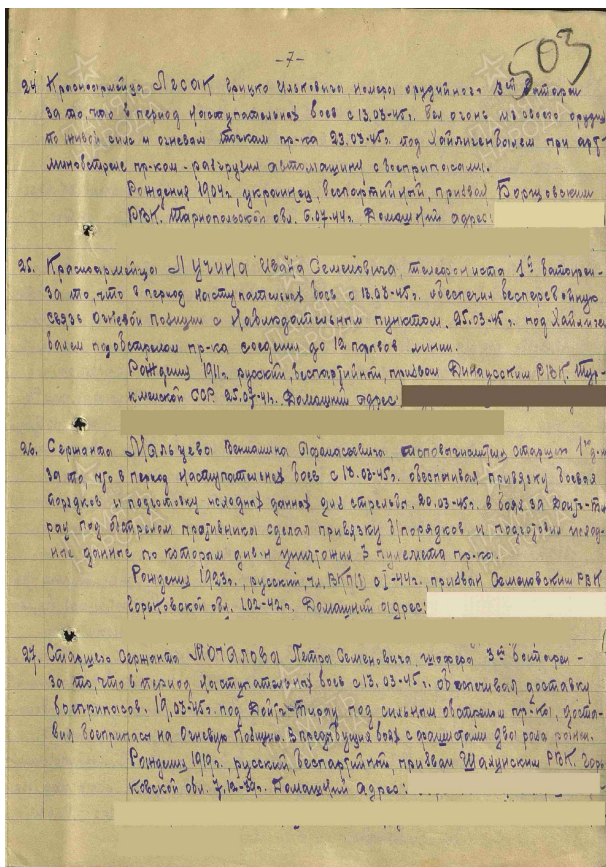 -7-
503
24 Красноармейца ЛЕСАК Грицко Ильковича номера орудийного 3ей батареи
за то, что в период наступательных боев с 13.03.45г. вел огонь из своего орудия
по живой силе и огневым точкам пр-ка 23.03.45г. под Хайлигенбалем при арт-
минобстреле пр-ком - разгрузил автомашину с боеприпасами.
Рождения 1904г, украинец, беспартийный, призван Борщовским
РВК. Тарнопольской обл. 6.04.44г. Домашний адрес:
25. Красноармейца ЛУЧИНА Ивана Семеновича, телефониста 1й батареи-
за то, что в период наступательных боев с 13.03.45г. обеспечил бесперебойную
связь огневой позиции с наблюдательным пунктом. 25.03.45г. под Хайлиген-
балем под обстрелом пр-ка соединил до 12 порывов линии.
Рождения 1911г. русский, беспартийный, призван Динаусским РВК. Тур-
кменской ССР. 25.07.41г. Домашний адрес:
26. Сержанта Мальцева Вениамина Афанасьевича, топовычислителя старшего
за то, что в период наступательных боев с 13.03.45г. обеспечивал привязку боевых
порядков и подготовку исходных данных для стрельбы. 20.03.45г. в боях за Дойч-Ти
рау под обстрелом противника сделал привязку б/порядков и подготовил исход-
ные данные по которым див-н уничтожил 3 пулемета пр-ка.
Рождения 1923г., русский, чл. ВКП(б) с I-44г. призван Семеновским РВК
Горьковской обл. Домашний адрес:
27. Старшего Сержанта МОЧАЛОВА Петра Семеновича, шофера 3ей батареи-
за то, что в период наступательных боев с 13.03.45г. обеспечивал доставку
боеприпасов. 19.03.45г. под Дойч-Тирау под сильным обстрелом пр-ка, доста-
вил боеприпасы на огневую позицию. В предыдущих боях с фашистами два раза ранен.
Рождения 1919г., русский, беспартийный, призван Шахунским РВК. Горь-
ковской обл. 7.12.39г. Домашний адрес: